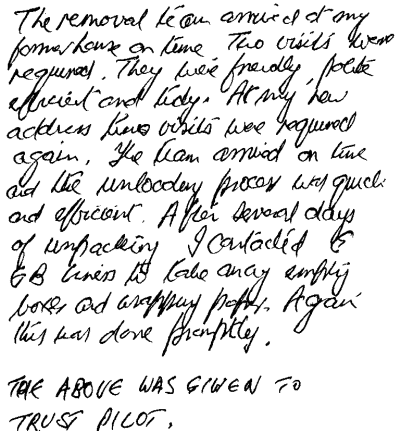 The removal team arrived at my
former house on time Two visits were
required. They were friendly, polite
efficient and tidy. At my new
address two visits were required
again. The team arrived on time
and the unloading process was quick
and efficient. After several days
of unpacking I contacted G
GB Liners to take away empty
boxes and wrapping paper. Again
this was done promptly.
THE ABOVE WAS GIVEN TO
TRUST PILOT.